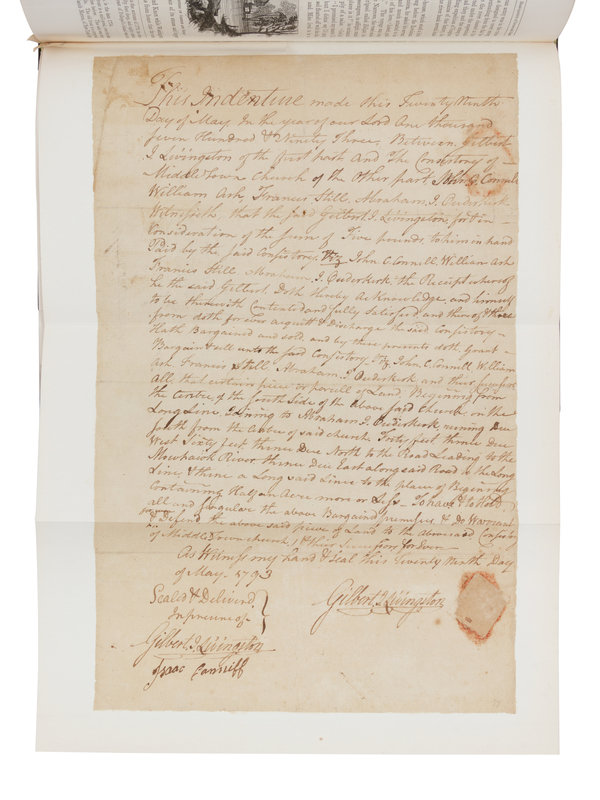 This Indenture made this Twenty Ninth
Day of May In the year of our Lord One thousand
seven Hundred & Ninety Three, Between Gilbert
I. Livingston of the first part And The Consistory of
Middle Town Church of the Other part John C. Connell
William Ash, Francis Still, Abraham I. Ouderkerk
Witnesseth, that the said Gilbert I. Livingston, for & in
Consideration of the sum of Five pounds to him in hand
Paid by the said Consistory, Viz John C. Connell, William Ash
Francis Still, Abraham I. Ouderkerk the Receipt whereof
he the said Gilbert Doth Hereby Acknowledge, and himself
to be therewith Contented and fully Satisfied, and thereof & there
from doth forever acquitt & Discharge the said Consistory
Hath Bargained and sold, and by these presents doth Grant
Bargain & sell unto the said Consistory Viz John C. Connell William
Ash Francis Still. Abraham I. Ouderkerk and their
All that certain piece or parcell of Land, Beginning from
the Centre of the South Side of the above said Church, on the
Long Line, & Lining to Abraham I. Ouderkerk, runing Due
South from the Centre of said church, Forty feet thence Due
West Sixty feet thence Due North to the Road Leading to the
Mowhawk River thence Due East along said Road to the Long
Line & thence a Long said Line to the place of Beginning
Containing Half an Acre more or Less. To have & to Hold
all and singular the above Bargained premises & Do Warrant
& Defend the above said piece of Land to the aforesaid Consistory
of Middle Town church, & their for Ever
As Witness my hand & seal this Twenty Ninth Day
of May 1793
Sealed & Delivered
In presence of
Gilbert I. Livingston
Gilbert I. Livingston
Isaac Canniff